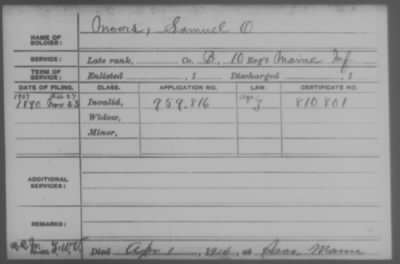 NAME OF SOLDIER: Moors, Samuel O
SERVICE: Late rank, Co. B, 10 Reg't Maine Inf
TERM OF SERVICE: Enlisted , 1 Discharged , 1
DATE OF FILING. CLASS. APPLICATION NO. LAW. CERTIFICATE NO.
1907 Feb 27 Age
1890 Nov Invalid, 959.816 J 810801
Widow,
Minor,
ADDITIONAL SERVICES:
REMARKS:
Died Apr 1, 1914, at Saco, Maine